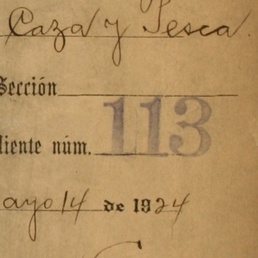 Caza y Pesca.
Sección
diente núm. 113
ayo 14 de 1924